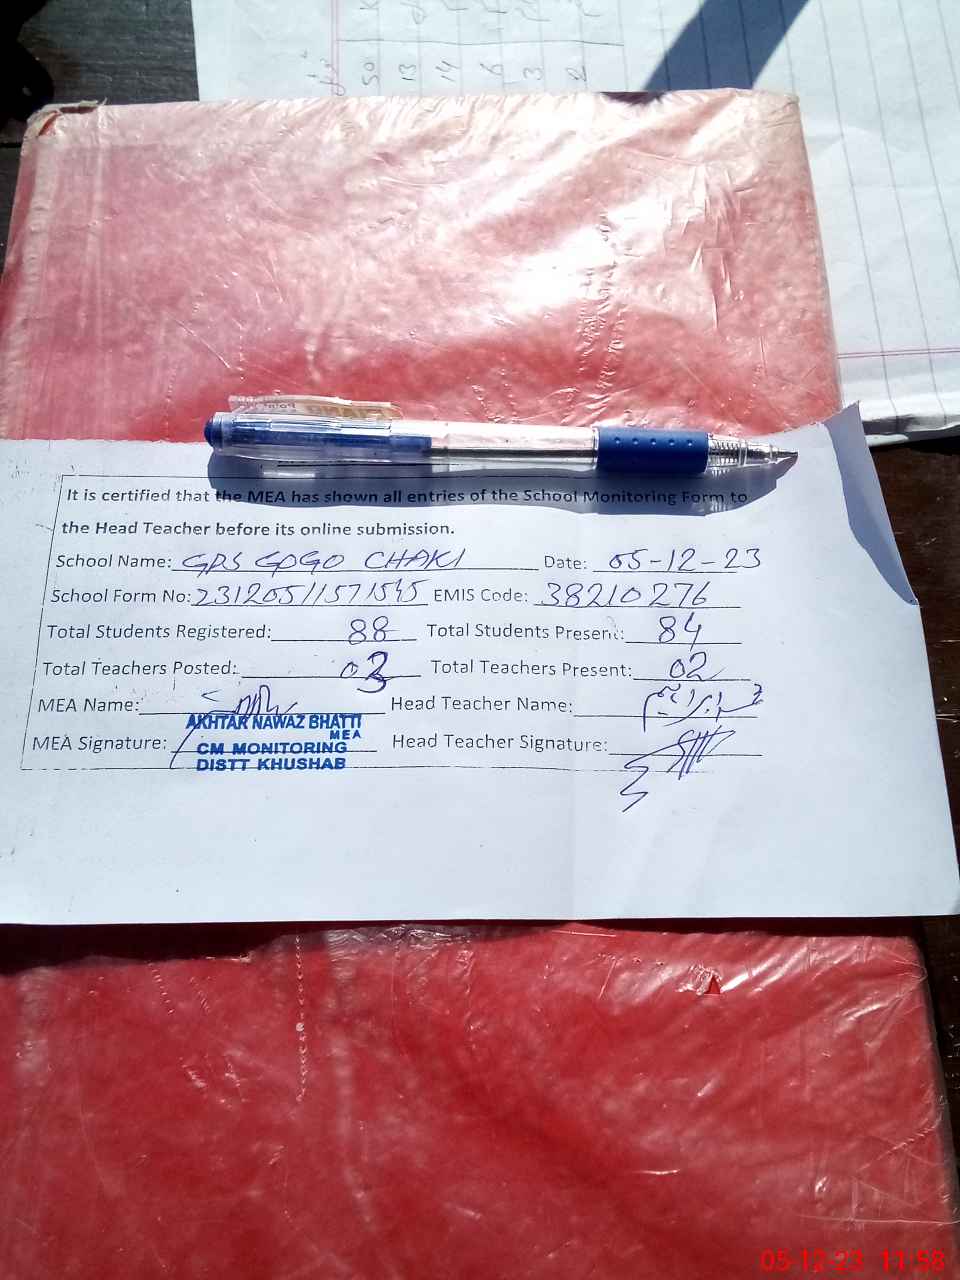 50
13
14
6
3
2
PIANO Point
It is certified that the MEA has shown all entries of the School Monitoring Form to
the Head Teacher before its online submission.
School Name: GPS GOGO CHAKI Date: 05-12-23
School Form No: 23120511571545 EMIS Code: 38210276
Total Students Registered: 88 Total Students Present: 84
Total Teachers Posted: 03 Total Teachers Present: 02
MEA Name: Head Teacher Name:
AKHTAR NAWAZ BHATTI
MEA
MEA Signature: Head Teacher Signature:
CM MONITORING
DISTT KHUSHAB
05-12-23 11:58